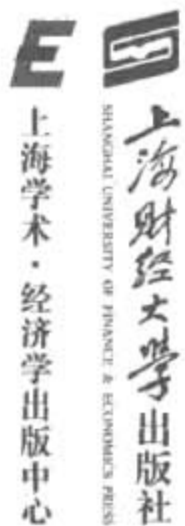 上海财经大学出版社
SHANGHAI UNIVERSITY OF FINANCE & ECONOMICS PRESS
E
上海学术·经济学出版中心